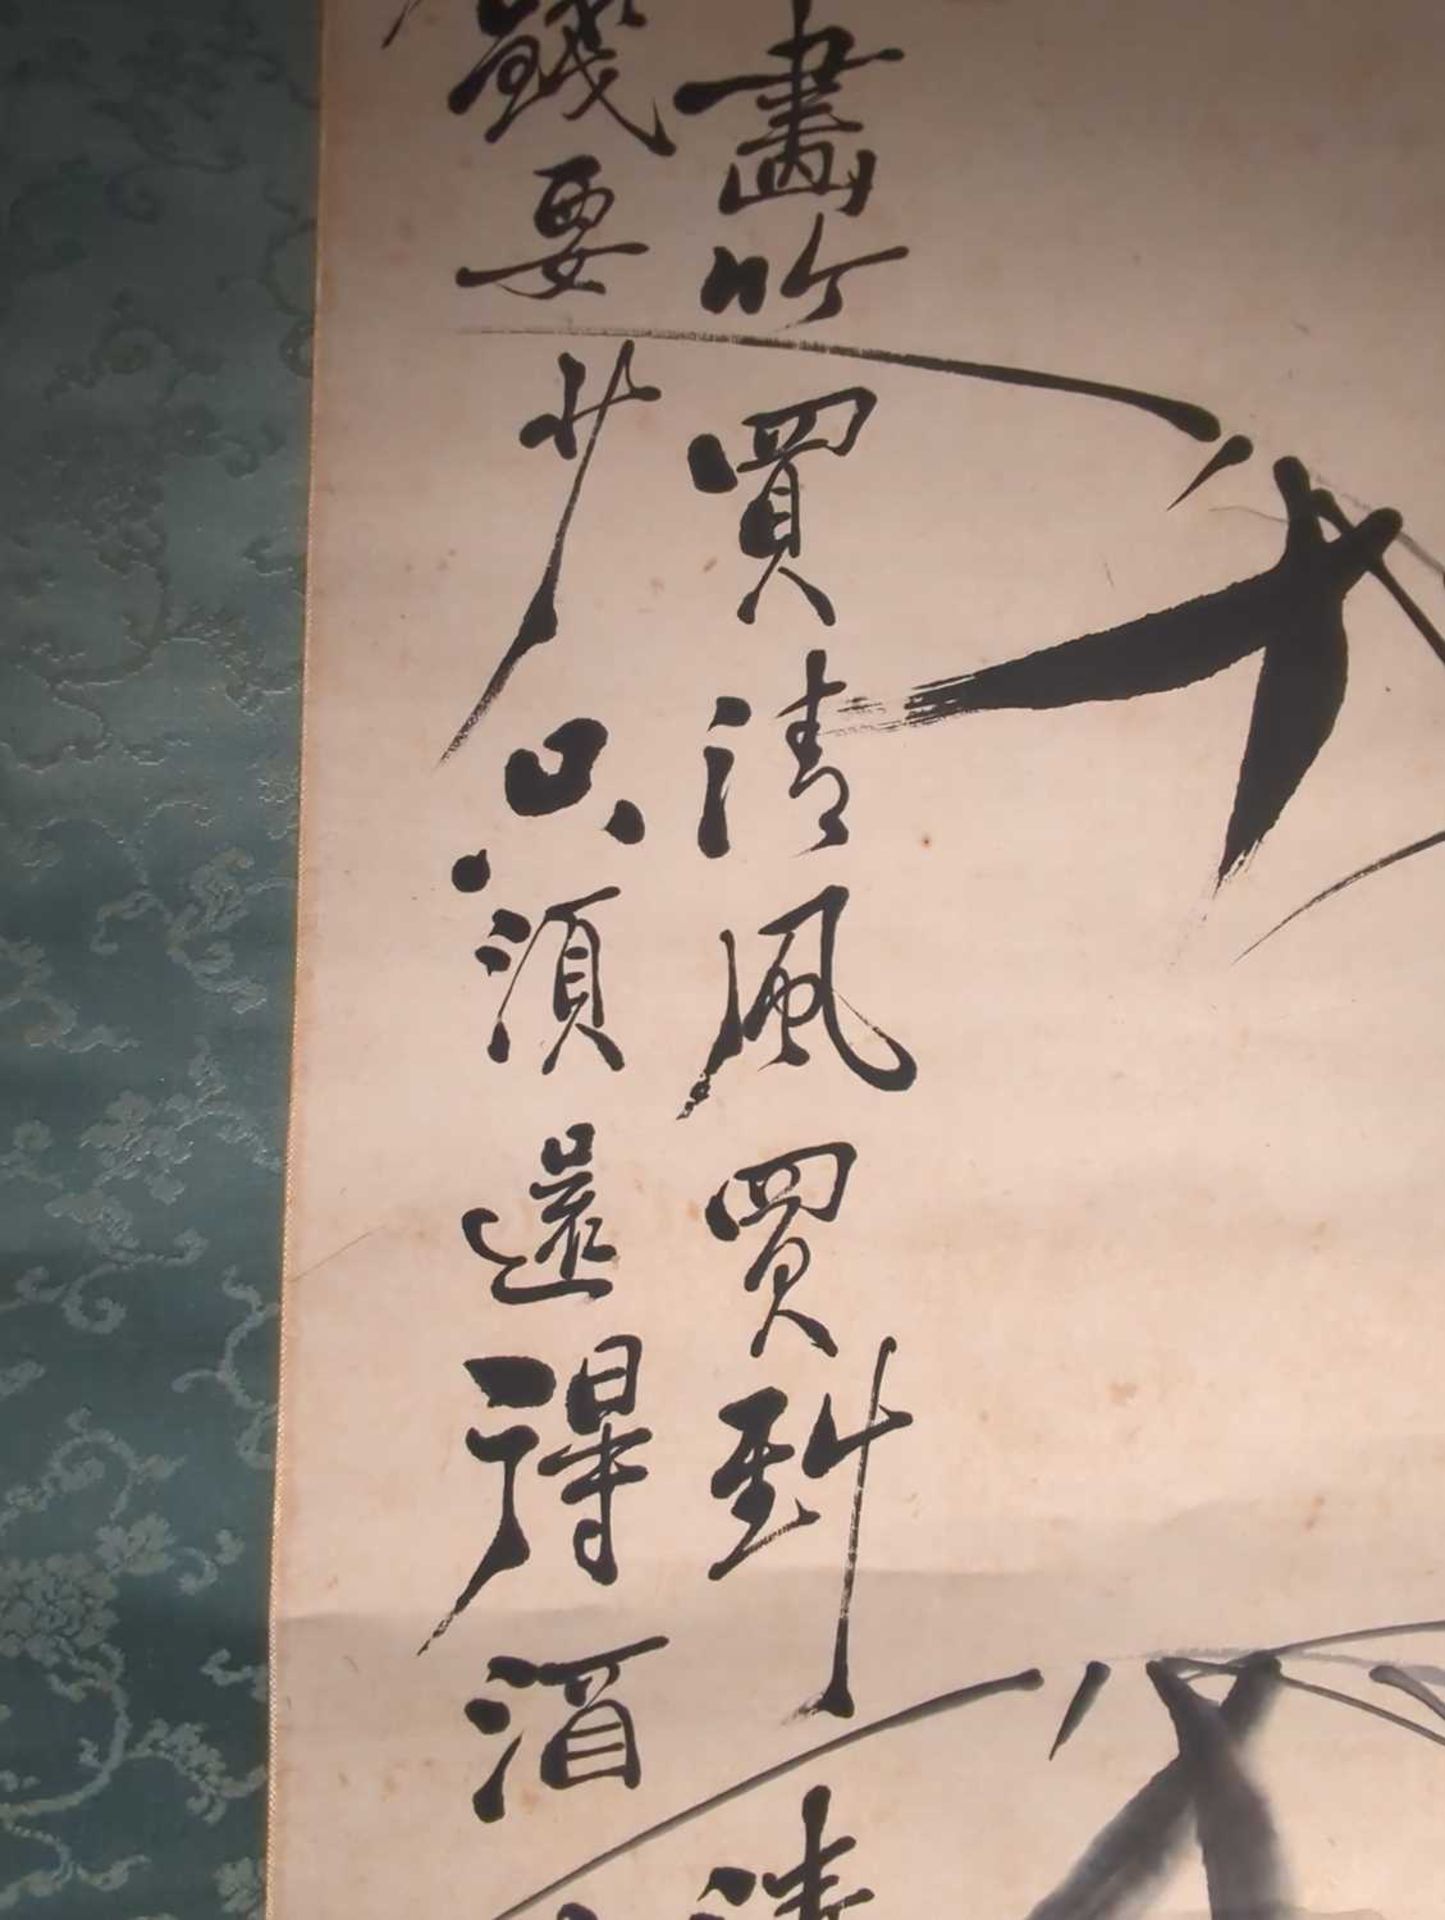 畫竹買清風買到清
錢要少只須還得酒